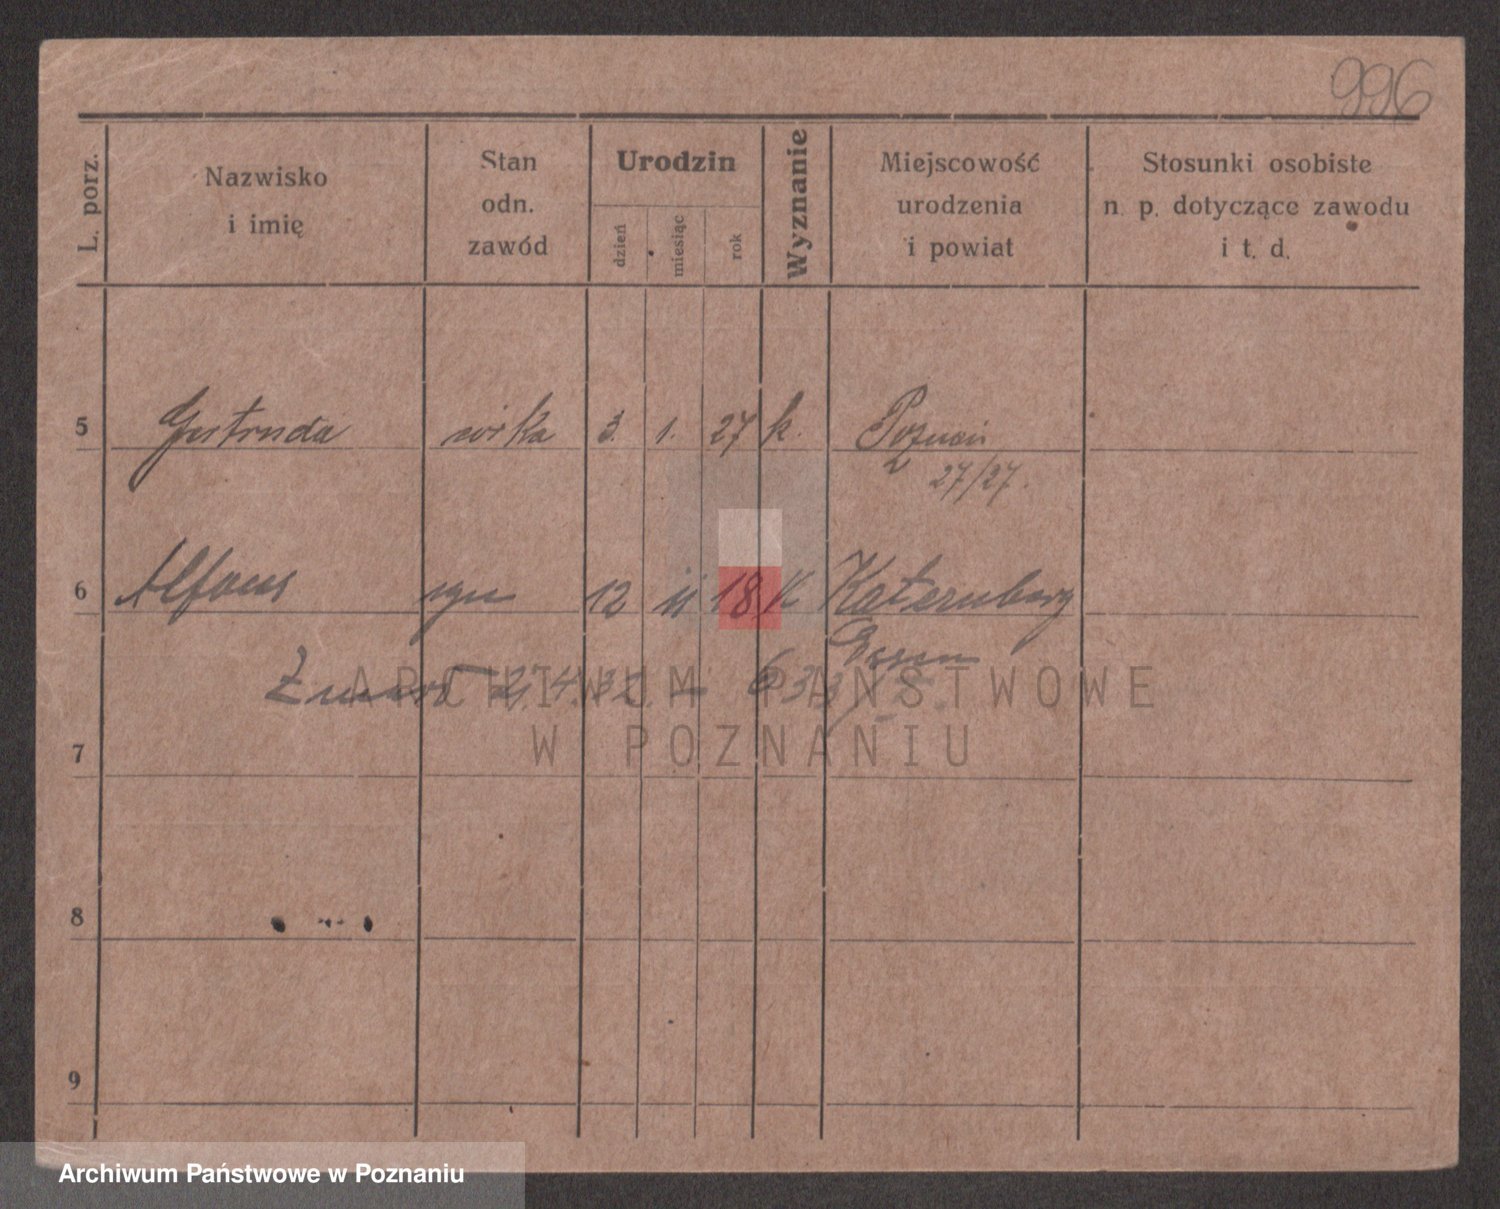 996
L. porz.
Nazwisko i imię
Stan odn. zawód
Urodzin
dzień
miesiąc
rok
Wyznanie
Miejscowość urodzenia i powiat
Stosunki osobiste n. p. dotyczące zawodu i t. d.
5 Gertruda córka 3. 1. 27 k. Poznań
27/27.
6 Alfons syn 12 11 18 K Katernberg
Essen
Zmarł 27.4.32.
7
8
9
ARCHIWUM PAŃSTWOWE
W POZNANIU
Archiwum Państwowe w Poznaniu